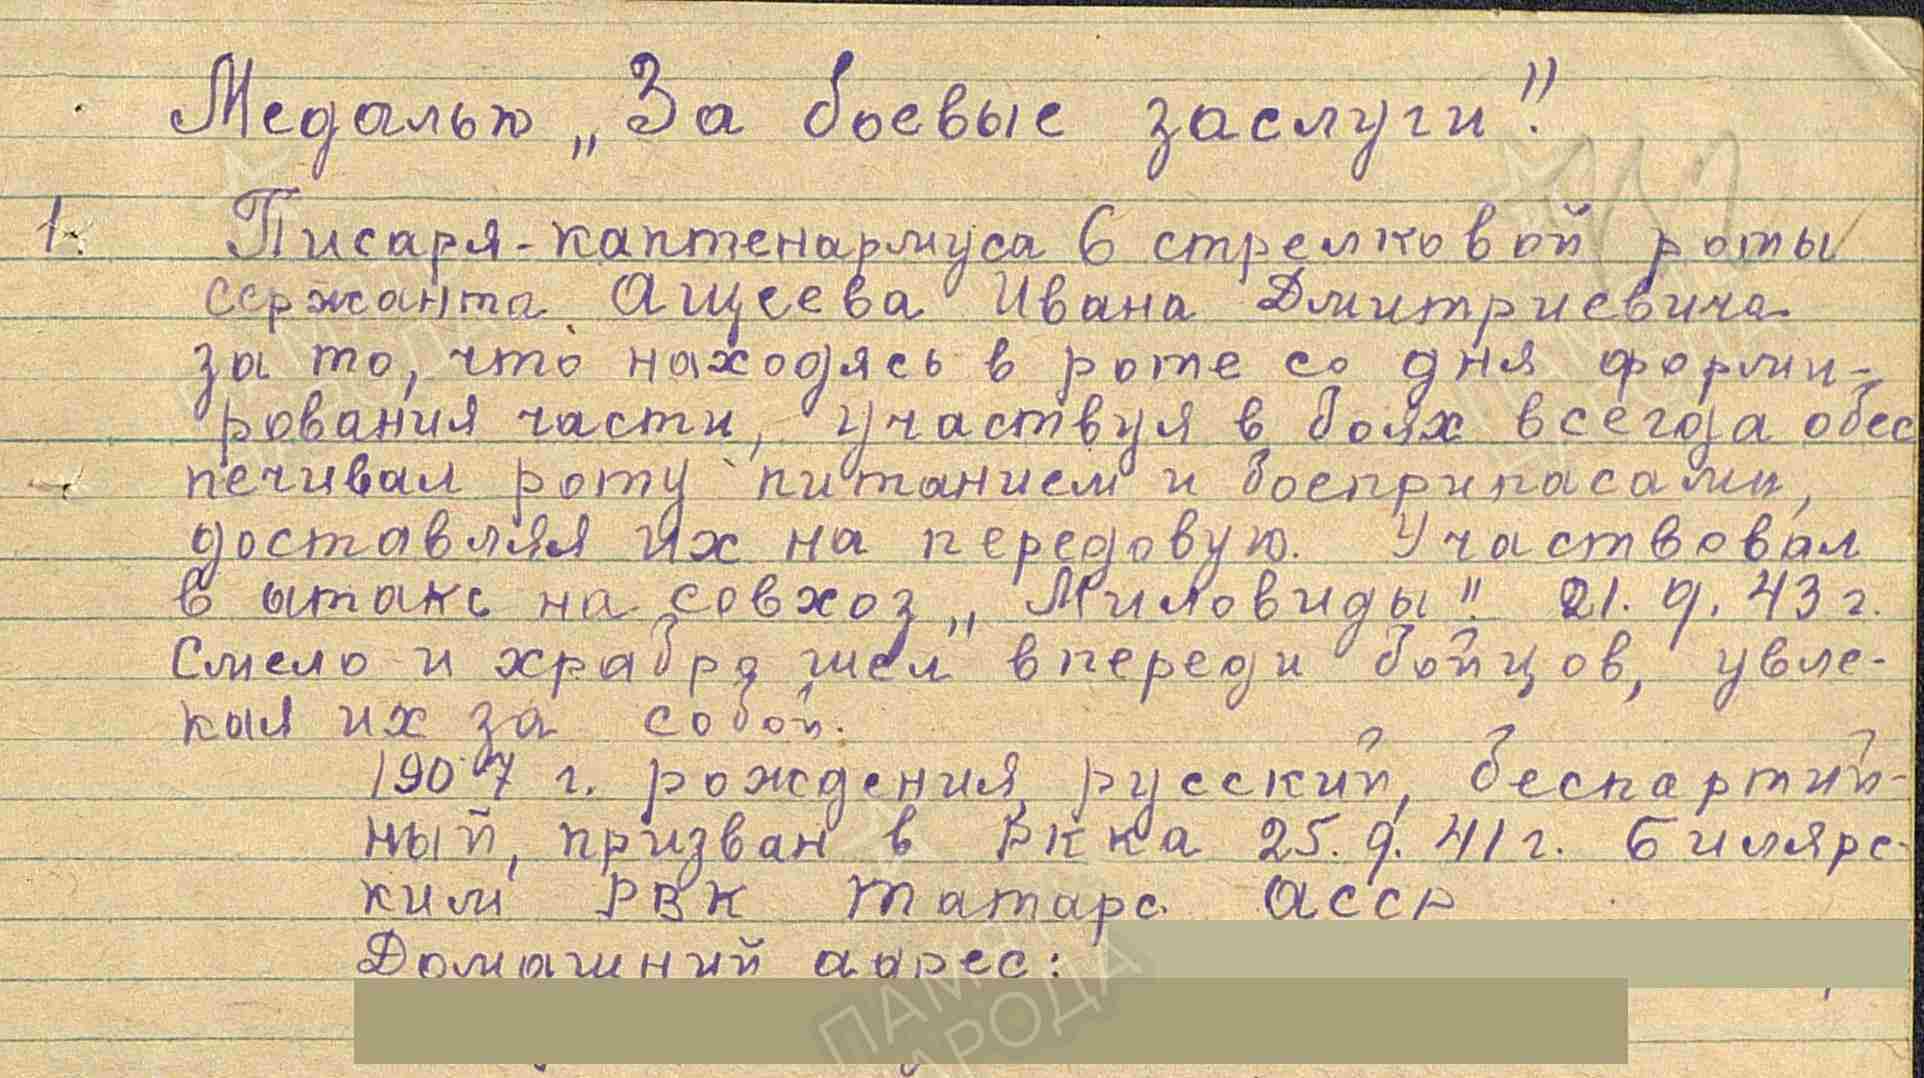 Медалью „За боевые заслуги".
1. Писаря-каптенармуса 6 стрелковой роты
сержанта Ащеева Ивана Дмитриевича
за то, что находясь в роте со дня форми-
рования части, участвуя в боях всегда обес
печивал роту питанием и боеприпасами,
доставляя их на передовую. Участвовал
в атаке на совхоз „Миловиды". 21.9.43 г.
Смело и храбро шел впереди бойцов, увле-
кая их за собой.
1907 г. рождения, русский, беспартий-
ный, призван в РККА 25.9.41 г. Билярс-
ким РВК Татарс. АССР
Домашний адрес:
ПАМЯТЬ
НАРОДА